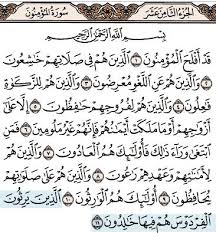 سورة المؤمنون الجزء الثامن عشر
بسم الله الرحمن الرحيم
قد أفلح المؤمنون ١ الذين هم في صلاتهم خاشعون
٢ والذين هم عن اللغو معرضون ٣ والذين هم للزكوة
فاعلون ٤ والذين هم لفروجهم حافظون ٥ إلا على
أزواجهم أو ما ملكت أيمانهم فإنهم غير ملومين ٦ فمن
ابتغى وراء ذلك فأولئك هم العادون ٧ والذين هم
لأماناتهم وعهدهم راعون ٨ والذين هم على صلواتهم
يحافظون ٩ أولئك هم الوارثون ١٠ الذين يرثون
الفردوس هم فيها خالدون ١١